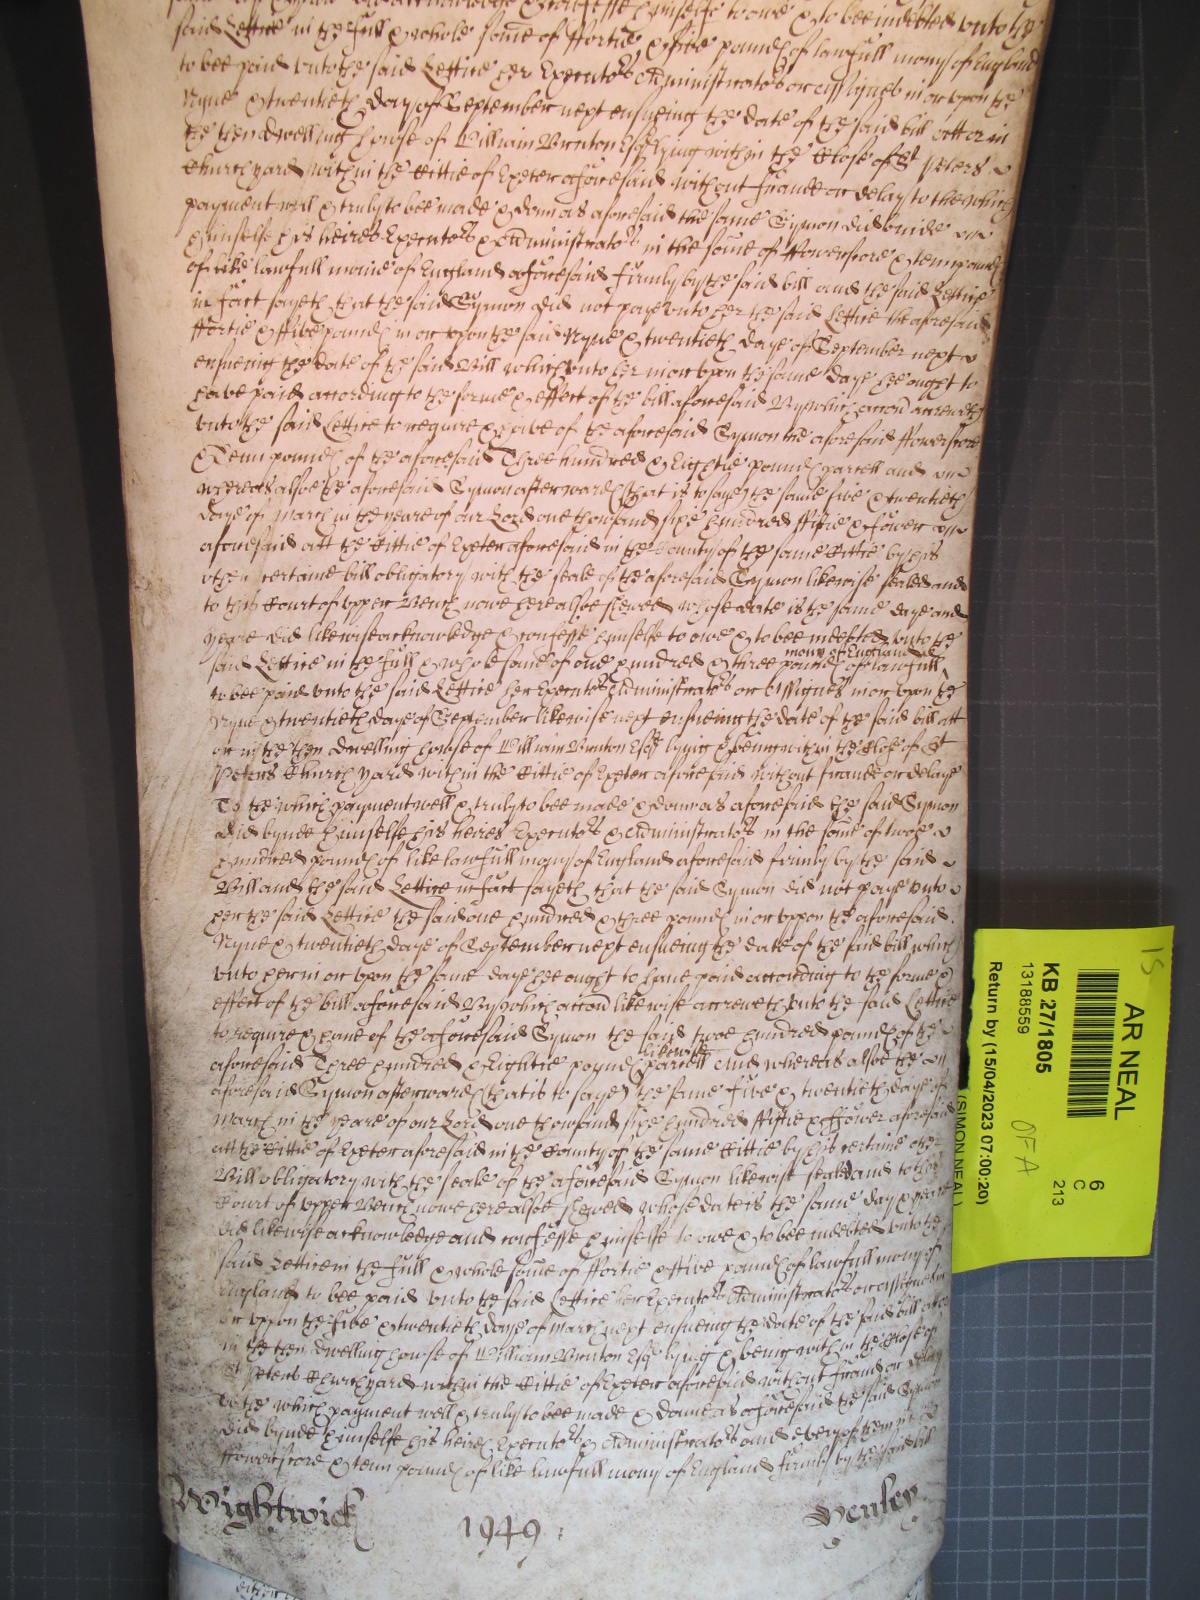 said Lettice in the full & whole some of ffortie & ffive pounds of lawfull mony of England
to bee paid unto the said Lettice her Executors Administrators or assignes in or upon the
Nyne & twentieth day of September next ensueing the date of the said bill att or in
the then dwelling house of William Bruton Esqr lying within the Close of St Peters
Church yard within the Cittie of Exeter aforesaid without fraude or delay to the which
payment well & truly to bee made & donn as aforesaid the same Symon did binde
himselfe his heires Executors & Administrators in the some of ffowerscore & tenn pounds
of like lawfull monie of England aforesaid firmly by the said bill and the said Lettice
in fact sayeth that the said Symon did not paye unto her the said Lettice the aforesaid
ffortie & ffive pounds in or upon the said Nyne & twentieth daye of September next
ensueing the date of the said Bill which unto her in or upon the same daye hee ought to
have paid according to the forme & effect of the bill aforesaid By which accon accrueth
unto the said Lettice to require & have of the aforesaid Symon the aforesaid ffowerscore
& Tenn pounds of the aforesaid Three hundred & Eightie pounds parcell and
whereas alsoe the aforesaid Symon afterwards (that is to saye) the same five & twentieth
daye of March in the yeare of our Lord one thowsand sixe hundred ffiftie & ffower
aforesaid att the Cittie of Exeter aforesaid in the County of the same Cittie by his
other certaine bill obligatory with the seale of the aforesaid Symon likewise sealed and
to this Court of upper Bench nowe here alsoe shewed whose date is the same daye and
yeare did likewise acknowledge & confesse himselfe to owe & to bee indebted unto the
said Lettice in the full & whole some of one hundred & three pounds of lawfull mony of England
to bee paid unto the said Lettice her Executors Administrators or Assignes in or upon the
Nyne & twentieth daye of September likewise next ensueing the date of the said bill att
or in the then dwelling house of William Bruton Esqr lying & being within the Close of St
Peters Church yard within the Cittie of Exeter aforesaid without fraude or delaye
To the which payment well & truly to bee made & donn as aforesaid the said Symon
did bynde himselfe his heires Executors & Administrators in the some of twoe
hundred pounds of like lawfull mony of England aforesaid firmly by the said
Bill and the said Lettice in fact sayeth that the said Symon did not paye unto
her the said Lettice the said one hundred & three pounds in or uppon the aforesaid
Nyne & twentieth daye of September next ensueing the date of the said bill which
unto her in or upon the same daye hee ought to have paid according to the forme &
effect of the bill aforesaid By which accon likewise accrueth unto the said Lettice
to require & have of the aforesaid Symon the said twoe hundred pounds of the
aforesaid Three hundred & Eightie pounds likewise parcell And whereas alsoe the
aforesaid Symon afterwards (that is to saye) the same five & twentieth daye of
March in the yeare of our Lord one thowsand sixe hundred ffiftie & ffower aforesaid
att the Cittie of Exeter aforesaid in the County of the same Cittie by his certaine other
Bill obligatory with the seale of the aforesaid Symon likewise sealed and to this
Court of upper Bench nowe here alsoe shewed whose date is the same day & yeare
did likewise acknowledge and confesse himselfe to owe & to bee indebted unto the
said Lettice in the full & whole some of ffortie & ffive pounds of lawfull mony of
England to bee paid unto the said Lettice her Executors Administrators or assignes in
or uppon the five & twentieth daye of March next ensueing the date of the said bill att or
in the then dwelling house of William Bruton Esqr lying & being within the Close of
St Peters Church yard within the Cittie of Exeter aforesaid without fraud or delay
To the which payment well & truly to bee made & donne as aforesaid the said Symon
did bynde himselfe his heires Executors & Administrators and every of them in
ffowerscore & tenn pounds of like lawfull mony of England firmly by the said bill
Wightwick 1949 Henley
AR NEAL
6
C
213
KB 27/1805
13188559
Return by (15/04/2023 07:00:20)
(SIMON NEAL)
OFA
15